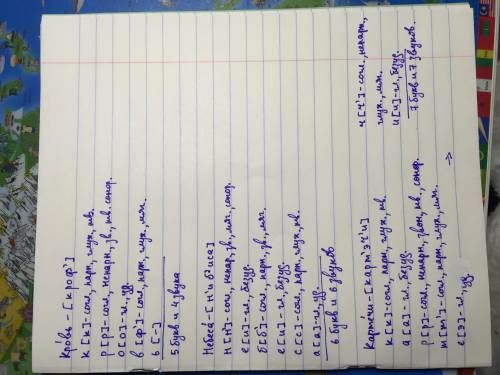 Кровь - [кроф']
к [к] - согл, парн, глух, тв.
р [р] - согл, непарн, зв., тв. сонор.
о [о] - гл, уд.
в [ф'] - согл, парн, глух, мяг.
ь [-]
5 букв и 4 звука
Небеса́ - [н'иб'иса]
н [н'] - согл, непар, зв., мяг, сонор.
е [и] - гл, безуд.
б [б'] - согл, парн, зв., мяг.
е [и] - гл, безуд.
с [с] - согл, парн, глух, тв.
а [а] - гл, уд.
6 букв и 6 звуков
Карте́чи - [карт'эч'и]
к [к] - согл, парн, глух, тв
а [а] - гл, безуд.
р [р] - согл, непарн, звон, тв., сонор.
т [т'] - согл, парн, глух, мяг.
е [э] - гл, уд
→
ч [ч'] - согл., непарн,
глух, мяг.
и [и] - гл, безуд.
7 букв и 7 звуков.